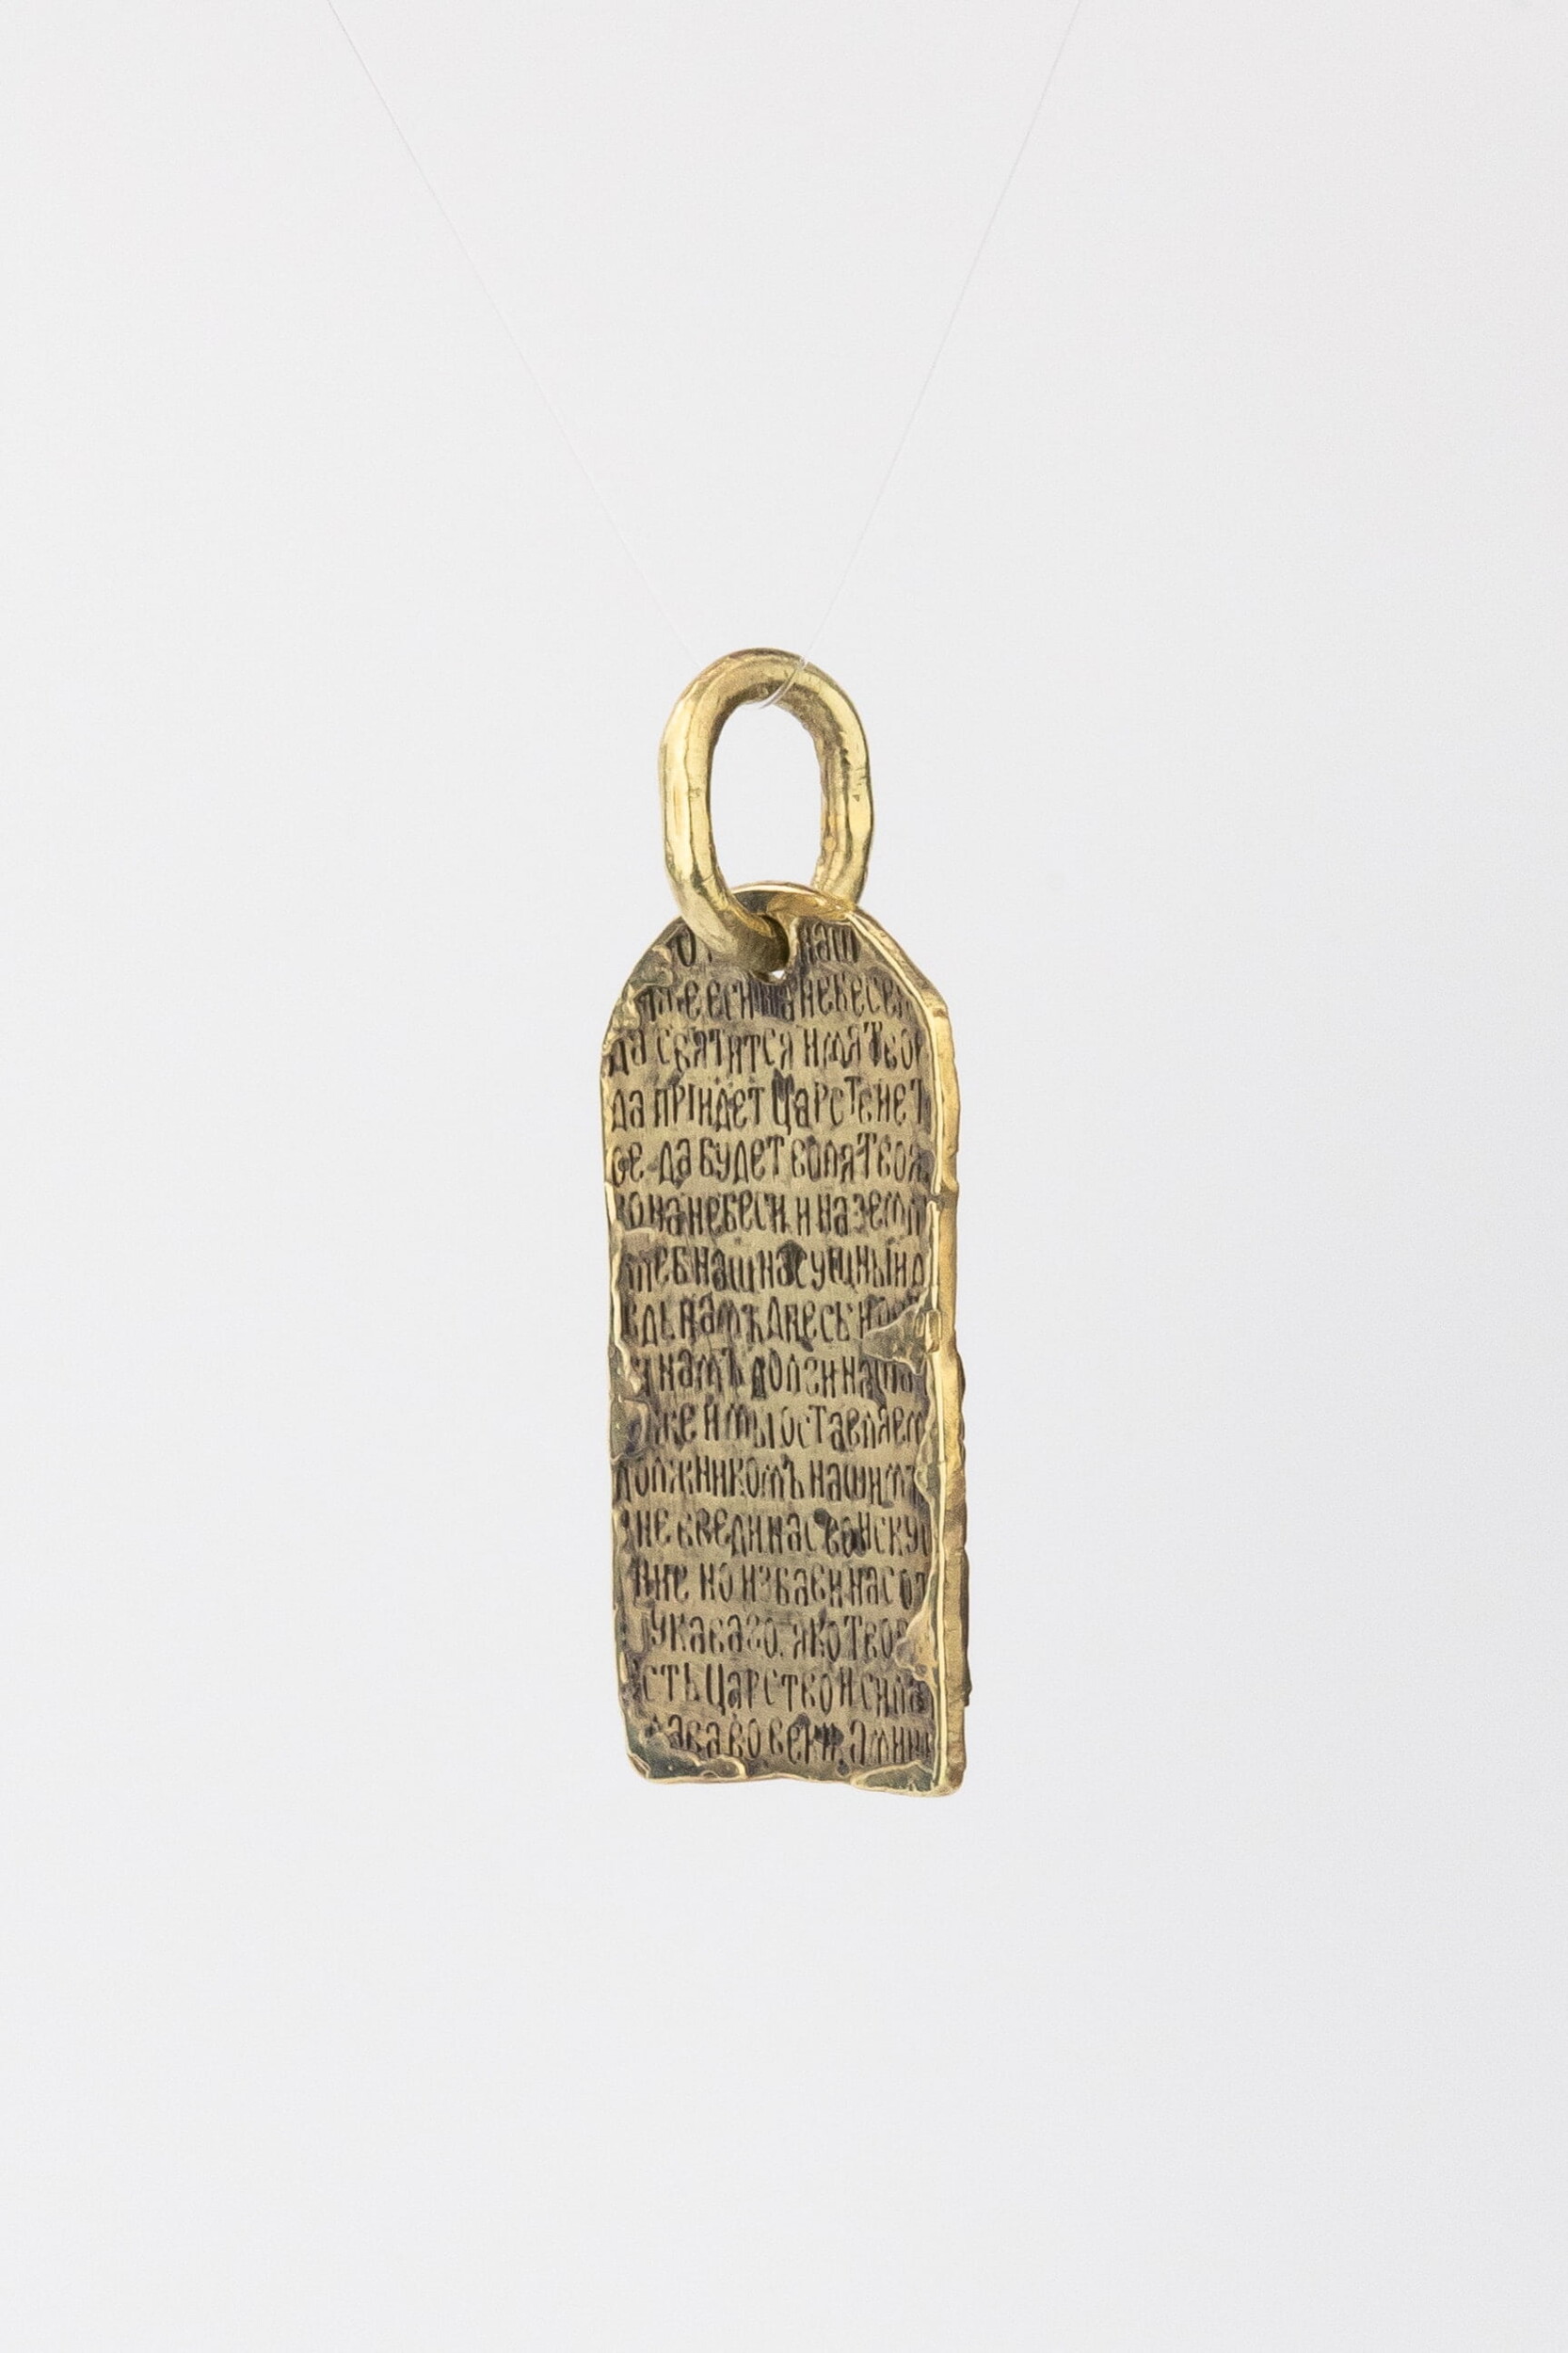 наш
еси на небесе
да святится имя Тво
да прїидет Царстенет
ое да будет воля Твоя
о на небеси и на земл
наш насущный д
намъ днесь и
намъ долги наш
же и мы оставляем
должникомъ нашимъ
не введи нас во иску
ние но избави нас от
лукаваго. яко Твое
сть Царство и сила
ава во веки. Аминь